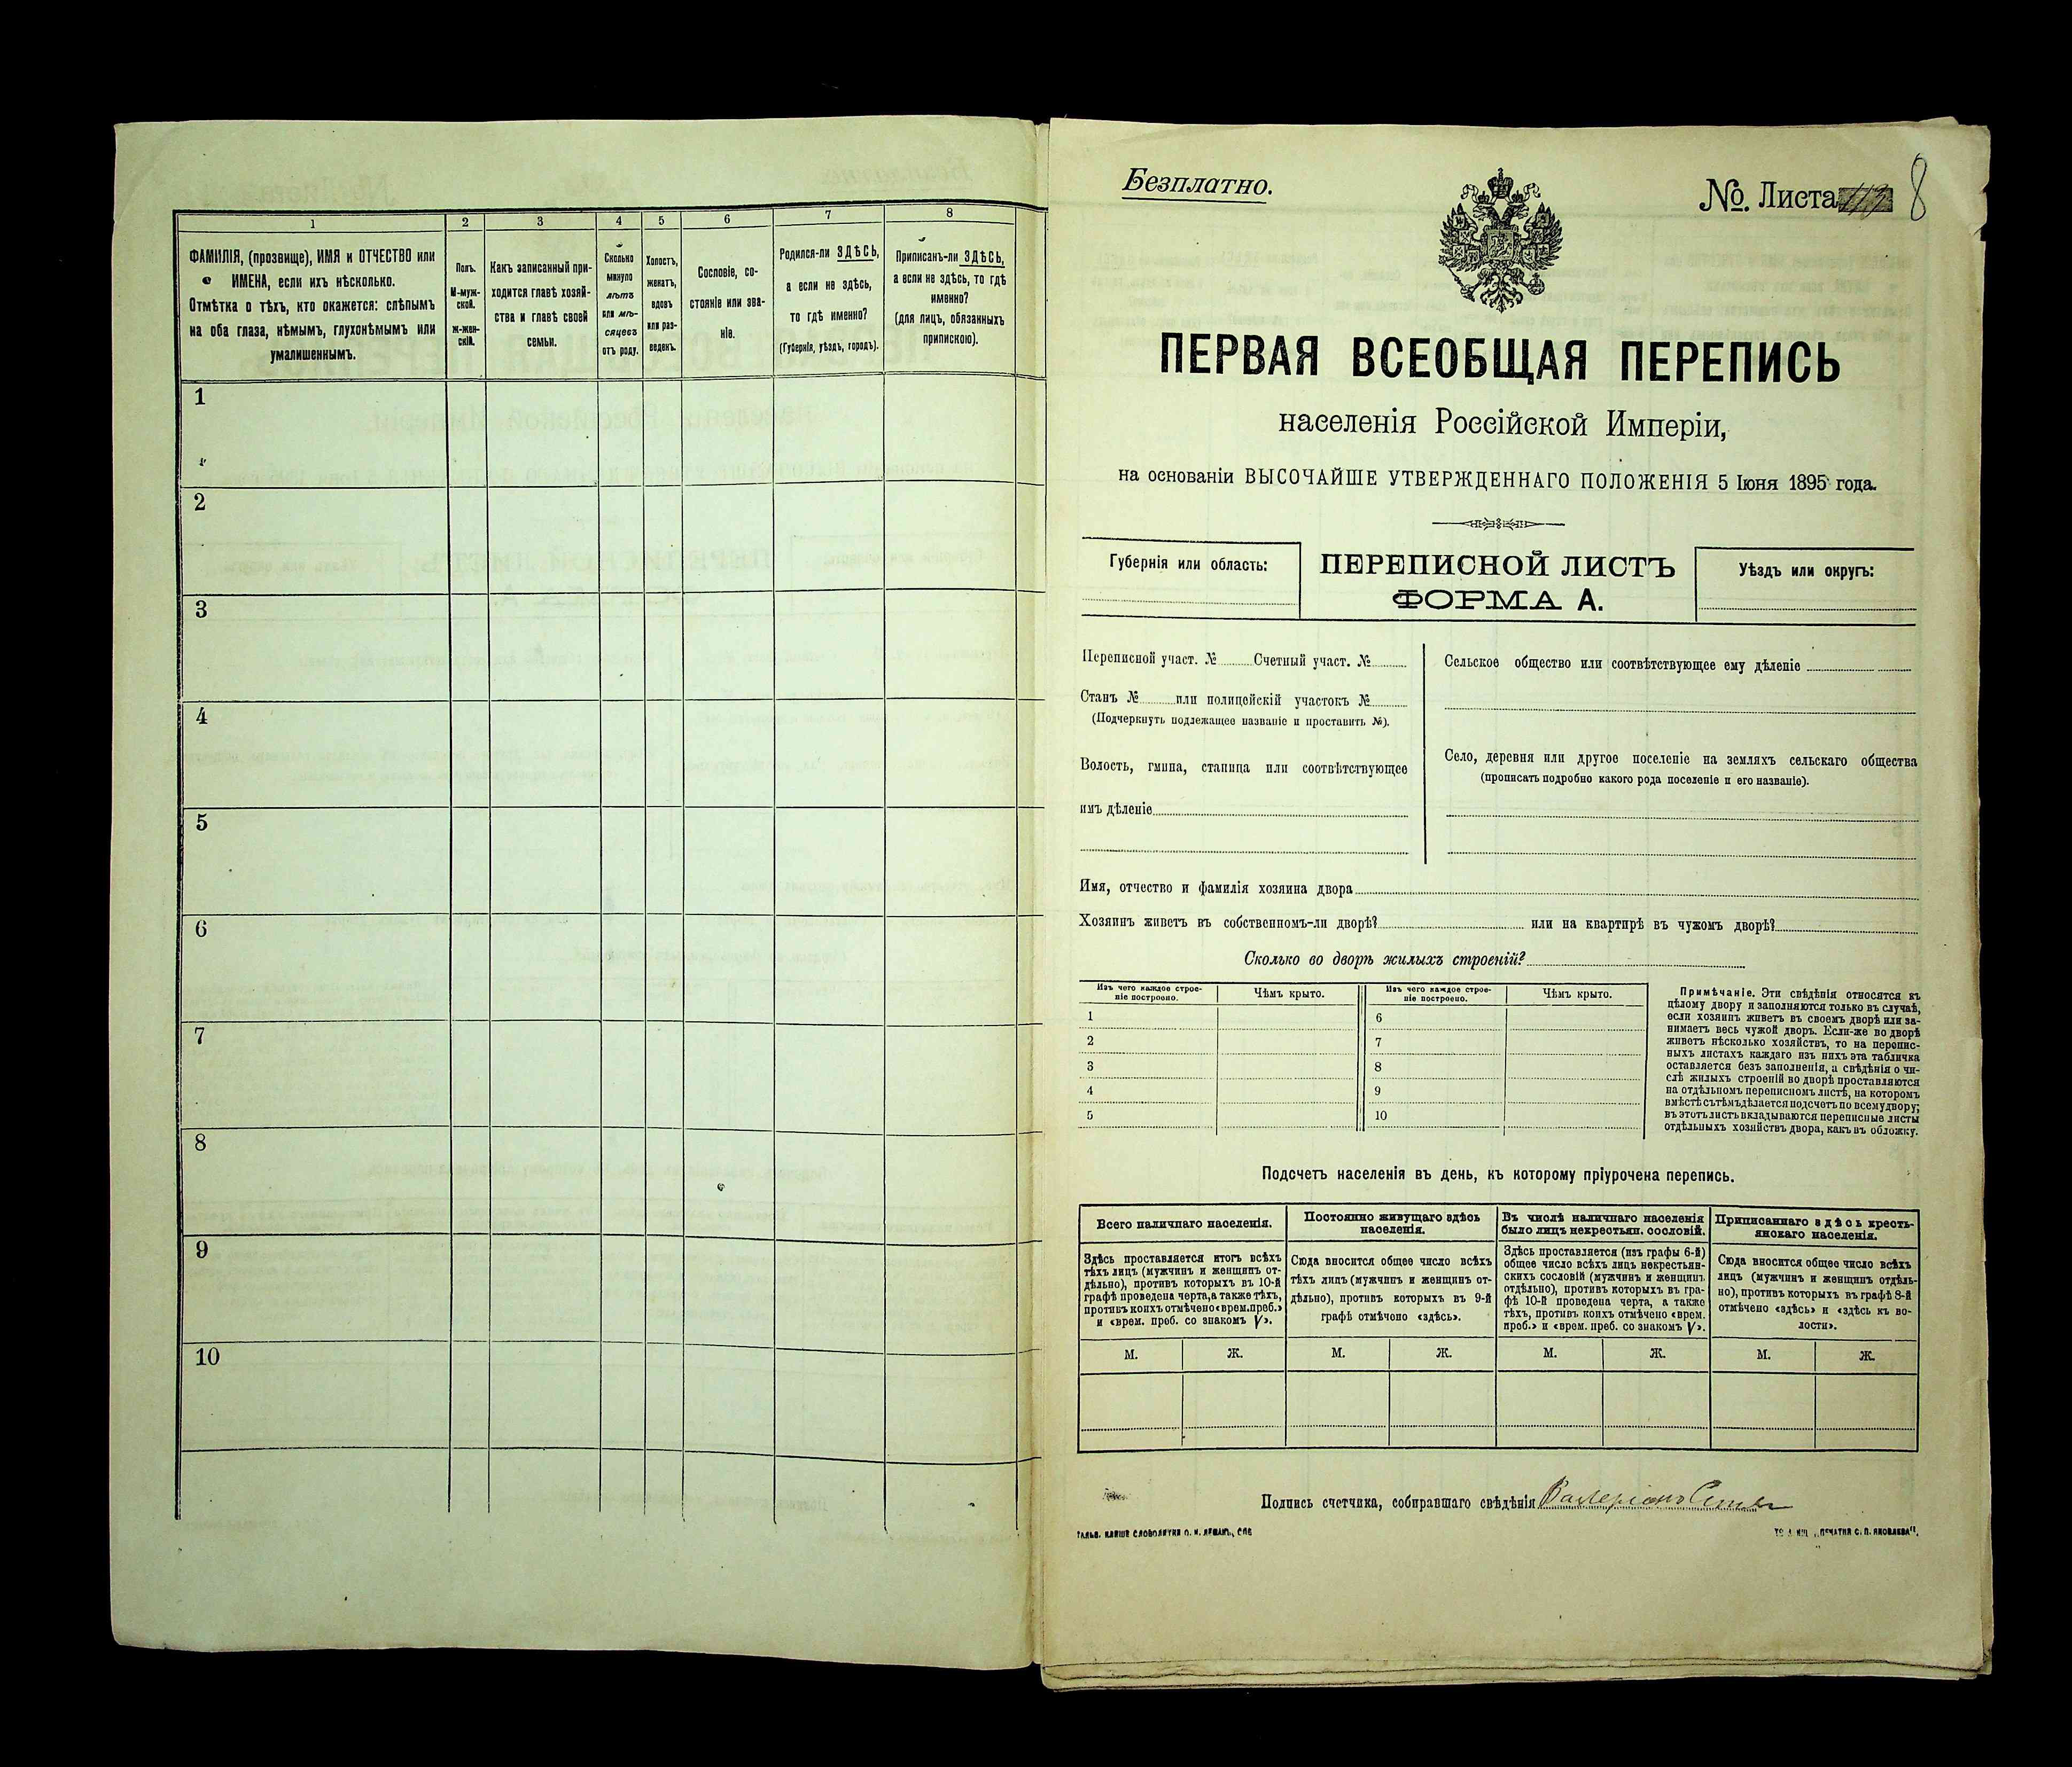 1
2
3
4
5
6
7
8
ФАМИЛІЯ, (прозвище), ИМЯ и ОТЧЕСТВО или
ИМЕНА, если ихъ нѣсколько.
Отмѣтка о тѣхъ, кто окажется: слѣпымъ
на оба глаза, нѣмымъ, глухонѣмымъ или
умалишеннымъ.
Полъ.
М-муж-
ской.
ж-жен-
скій.
Какъ записанный при-
ходится главѣ хозяй-
ства и главѣ своей
семьи.
Сколько
минуло
лѣтъ
или мѣ-
сяцевъ
отъ роду.
Холостъ,
женатъ,
вдовъ
или раз-
веденъ.
Сословіе, со-
стояніе или зва-
ніе.
Родился-ли ЗДѢСЬ,
а если не здѣсь,
то гдѣ именно?
(Губернія, уѣздъ, городъ).
Приписанъ-ли ЗДѢСЬ,
а если не здѣсь, то гдѣ
именно?
(для лицъ, обязанныхъ
припискою).
1
2
3
4
5
6
7
8
9
10
Безплатно.
№. Листа 113 8
ПЕРВАЯ ВСЕОБЩАЯ ПЕРЕПИСЬ
населенія Россійской Имперіи,
на основаніи ВЫСОЧАЙШЕ УТВЕРЖДЕННАГО ПОЛОЖЕНІЯ 5 Іюня 1895 года.
Губернія или область:
ПЕРЕПИСНОЙ ЛИСТЪ
ФОРМА А.
Уѣздъ или округъ:
Переписной участ. № Счетный участ. №
Станъ № или полицейскій участокъ №
(Подчеркнуть подлежащее названіе и проставить №).
Волость, гмина, станица или соотвѣтствующее
имъ дѣленіе
Сельское общество или соотвѣтствующее ему дѣленіе
Село, деревня или другое поселеніе на земляхъ сельскаго общества
(прописать подробно какого рода поселеніе и его названіе).
Имя, отчество и фамилія хозяина двора
Хозяинъ живетъ въ собственномъ-ли дворѣ? или на квартирѣ въ чужомъ дворѣ?
Сколько во дворѣ жилыхъ строеній?
Изъ чего каждое строе-
ніе построено.
Чѣмъ крыто.
Изъ чего каждое строе-
ніе построено.
Чѣмъ крыто.
1
2
3
4
5
6
7
8
9
10
Примѣчаніе. Эти свѣдѣнія относятся къ
цѣлому двору и заполняются только въ случаѣ,
если хозяинъ живетъ въ своемъ дворѣ или за-
нимаетъ весь чужой дворъ. Если-же во дворѣ
живетъ нѣсколько хозяйствъ, то на перепис-
ныхъ листахъ каждаго изъ нихъ эта табличка
оставляется безъ заполненія, а свѣдѣнія о чи-
слѣ жилыхъ строеній во дворѣ проставляются
на отдѣльномъ переписномъ листѣ, на которомъ
вмѣстѣ съ тѣмъ дѣлается подсчетъ по всему двору;
въ этотъ листъ вкладываются переписные листы
отдѣльныхъ хозяйствъ двора, какъ въ обложку.
Подсчетъ населенія въ день, къ которому пріурочена перепись.
Всего наличнаго населенія.
Здѣсь проставляется итогъ всѣхъ
тѣхъ лицъ (мужчинъ и женщинъ от-
дѣльно), противъ которыхъ въ 10-й
графѣ проведена черта, а также тѣхъ,
противъ коихъ отмѣчено «врем. преб.»
и «врем. преб. со знакомъ V».
Постоянно живущаго здѣсь
населенія.
Сюда вносится общее число всѣхъ
тѣхъ лицъ (мужчинъ и женщинъ от-
дѣльно), противъ которыхъ въ 9-й
графѣ отмѣчено «здѣсь».
Въ числѣ наличнаго населенія
было лицъ некрестьян. сословій.
Здѣсь проставляется (изъ графы 6-й)
общее число всѣхъ лицъ некрестьян-
скихъ сословій (мужчинъ и женщинъ
отдѣльно), противъ которыхъ въ гра-
фѣ 10-й проведена черта, а также
тѣхъ, противъ коихъ отмѣчено «врем.
преб.» и «врем. преб. со знакомъ V».
Приписаннаго здѣсь кресть-
янскаго населенія.
Сюда вносится общее число всѣхъ
лицъ (мужчинъ и женщинъ отдѣль-
но), противъ которыхъ въ графѣ 8-й
отмѣчено «здѣсь» и «здѣсь къ во-
лости».
М. Ж. М. Ж. М. Ж. М. Ж.
Подпись счетчика, собиравшаго свѣдѣнія Валеріанъ
ГАЛЬВ. КЛИШЕ СЛОВОЛИТНИ О. И. ЛЕМАНЪ, СПБ
„ПЕЧАТНЯ С. П. ЯКОВЛЕВА".